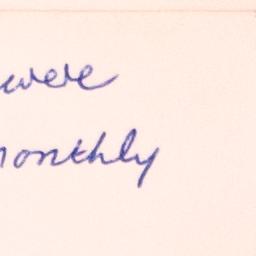 were
monthly